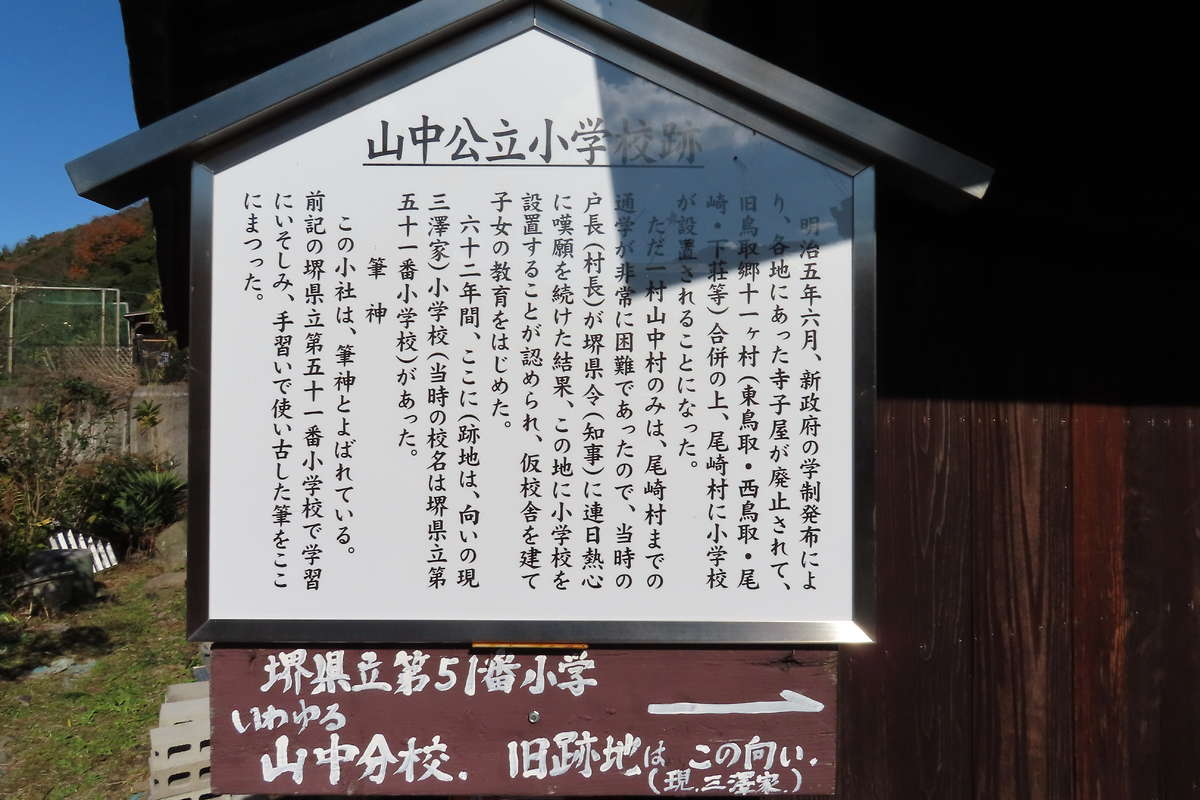 山中公立小学校跡
明治五年六月、新政府の学制発布によ
り、各地にあった寺子屋が廃止されて、
旧鳥取郷十一ヶ村(東鳥取・西鳥取・尾
崎・下荘等)合併の上、尾崎村に小学校
が設置されることになった。
ただ一村山中村のみは、尾崎村までの
通学が非常に困難であったので、当時の
戸長(村長)が堺県令(知事)に連日熱心
に嘆願を続けた結果、この地に小学校を
設置することが認められ、仮校舎を建て
子女の教育をはじめた。
六十二年間、ここに(跡地は、向いの現
三澤家)小学校(当時の校名は堺県立第
五十一番小学校)があった。
筆神
この小社は、筆神とよばれている。
前記の堺県立第五十一番小学校で学習
にいそしみ、手習いで使い古した筆をここ
にまつった。
堺県立第51番小学
いわゆる
山中分校. 旧跡地は この向い.
(現.三澤家.)